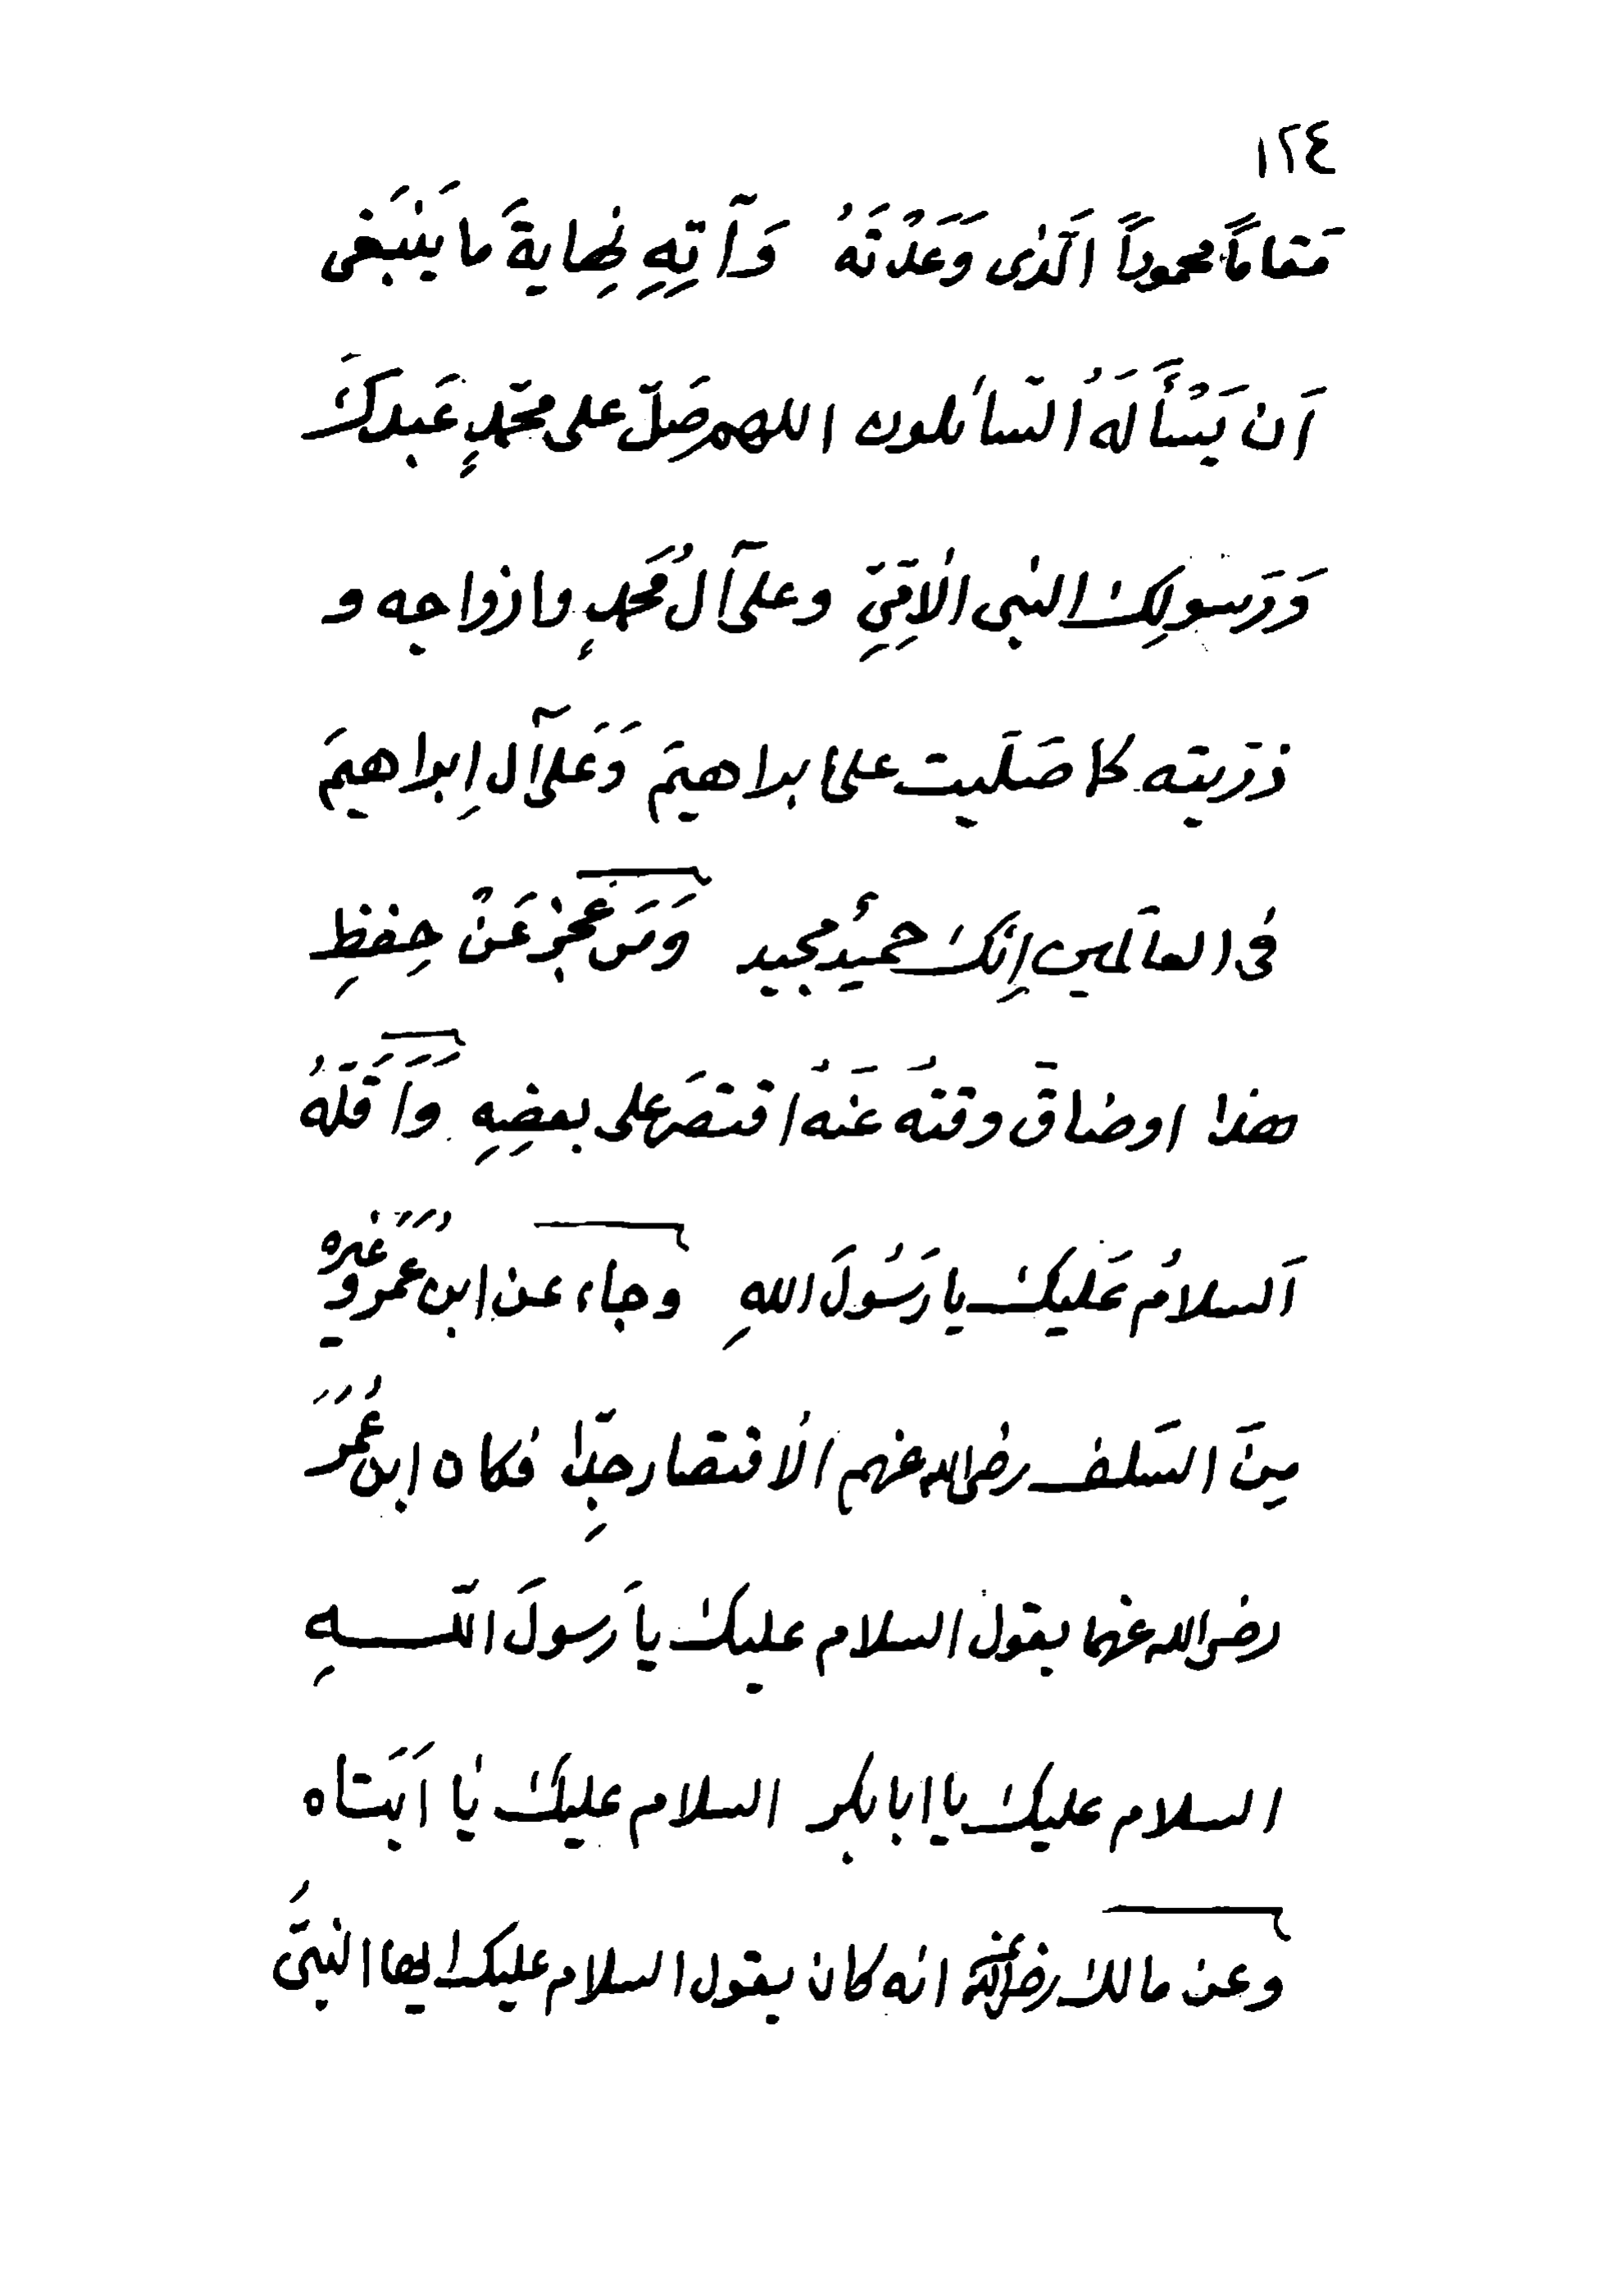 ١٢٤
مَقامًا محمودًا الَّذى وَعَدْتَهُ وَآتِهِ نِهايةَ ما يَنْبَغى
اَن يَسْأَلَهُ السَّائلون اللهم صَلِّ على محمّدٍ عَبدكَ
وَرَسولِكَ النبى الأمِّيِّ وعلى آل مُحَمدٍ وازواجه و
ذرّيته كما صَلَّيت على ابراهيمَ وَعَلى آل اِبراهيمَ
فى العالَمين إنَّك حميدٌ مجيد وَمَن عَجزَ عَنْ حِفظِ
هذا اوضاقَ وقتُه عَنهُ اقتصَر على بعضِهِ وَاَقَلُّهُ
اَلسلامُ عَليك يا رَسُولَ اللهِ وجاء عن ابن عُمَر وغيره
مِنَ السَّلف رضى الله عنهم الاقتصار جِدًّا فكان ابن عُمَرَ
رضى الله عنهما يقول السلام عليك يا رَسولَ اللّــــهِ
السلام عليك يا ابا بكر السلام عليك يا اَبَتاه
وعن مالك رضى الله عنه انه كان يقول السلام عليك ايها النبىُّ